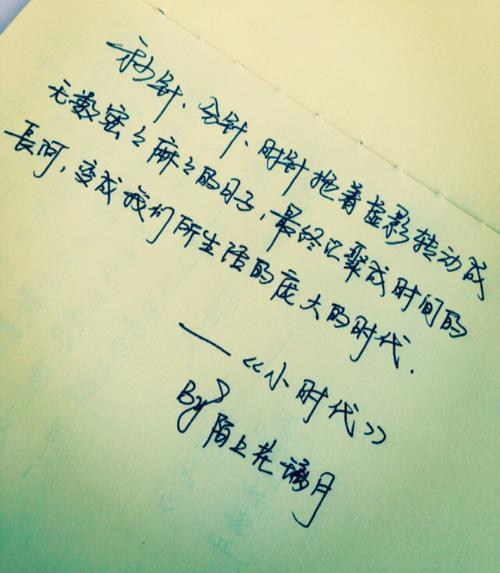 秒针、分针、时针拖着虚影转动成
无数密密麻麻的日子，最终汇聚成时间的
長河，变成我们所生活的庞大的时代.
——《小时代》
By 陌上花谪月